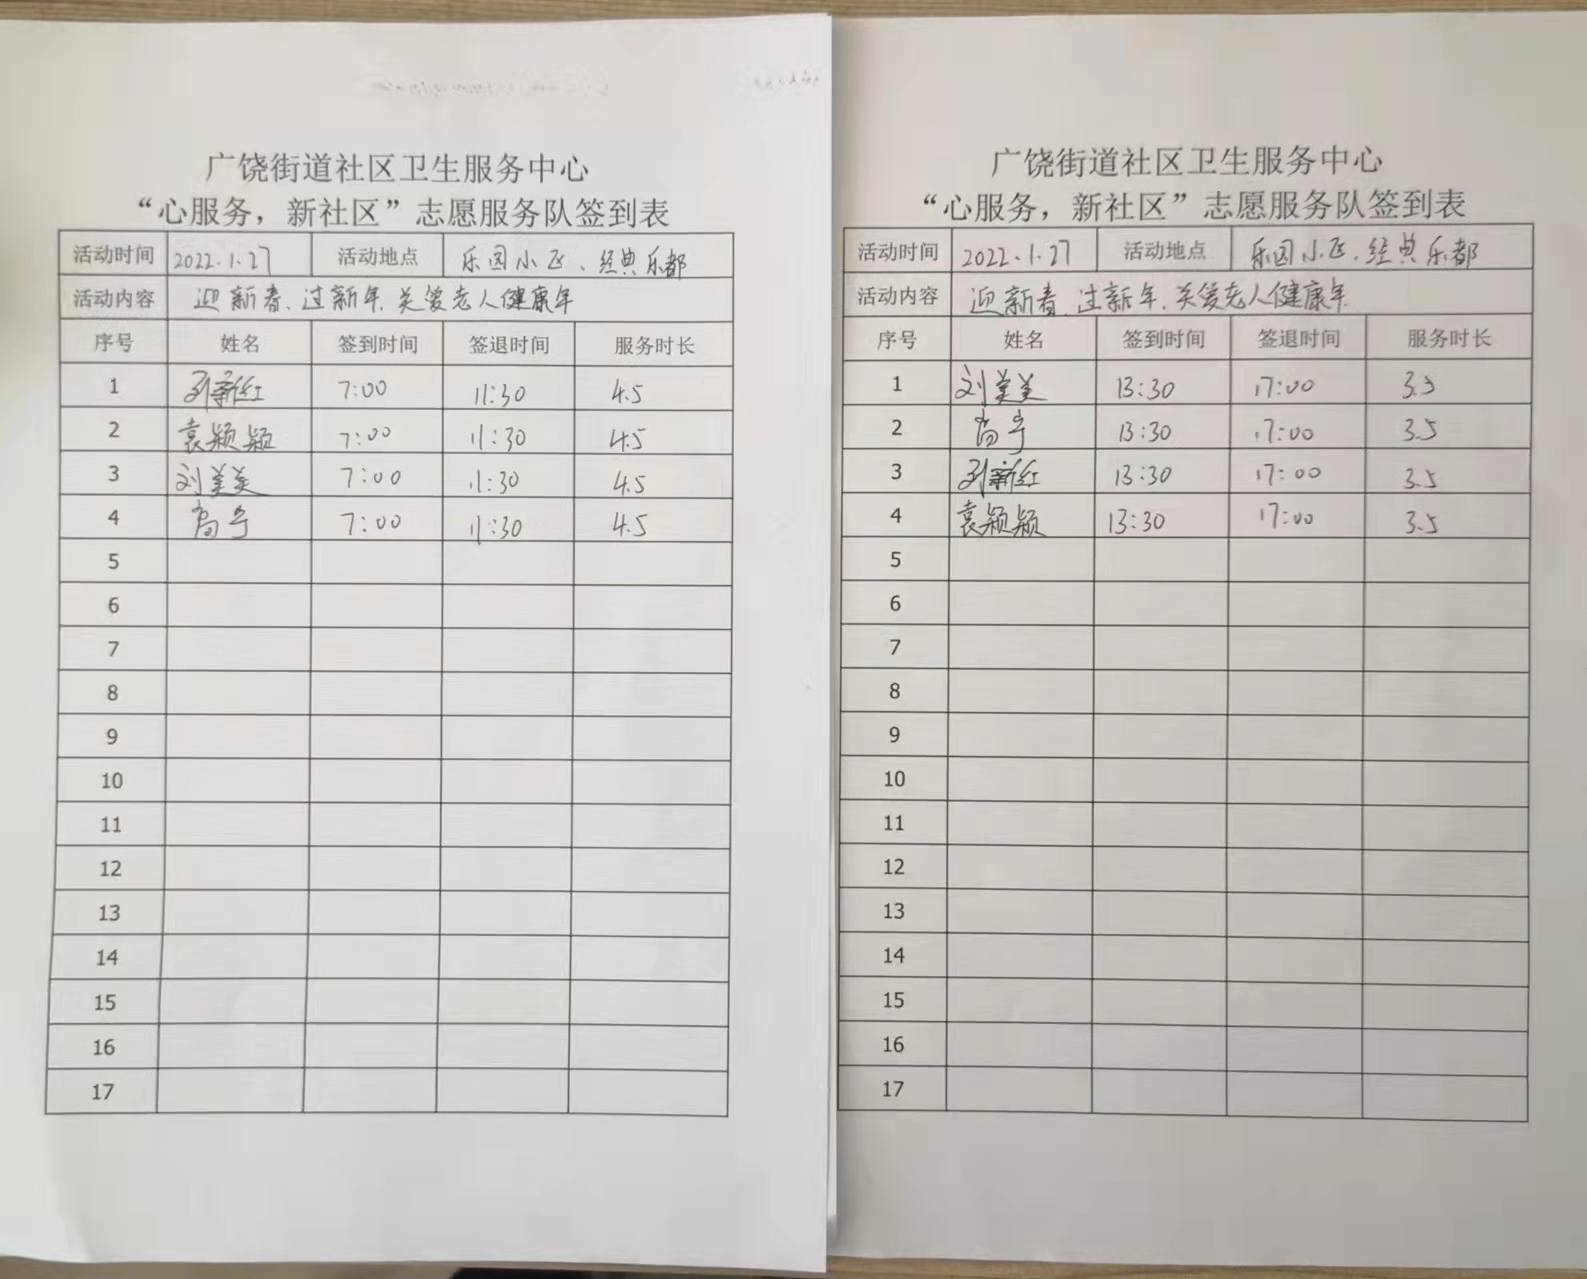 广饶街道社区卫生服务中心
“心服务，新社区”志愿服务队签到表
活动时间 2022.1.27 活动地点 乐园小区、经典乐都
活动内容 迎新春、过新年、关爱老人健康年
序号 姓名 签到时间 签退时间 服务时长
1 刘新红 7:00 11:30 4.5
2 袁颖颖 7:00 11:30 4.5
3 刘美美 7:00 11:30 4.5
4 高宁 7:00 11:30 4.5
5
6
7
8
9
10
11
12
13
14
15
16
17
广饶街道社区卫生服务中心
“心服务，新社区”志愿服务队签到表
活动时间 2022.1.27 活动地点 乐园小区、经典乐都
活动内容 迎新春、过新年、关爱老人健康年
序号 姓名 签到时间 签退时间 服务时长
1 刘美美 13:30 17:00 3.5
2 高宁 13:30 17:00 3.5
3 刘新红 13:30 17:00 3.5
4 袁颖颖 13:30 17:00 3.5
5
6
7
8
9
10
11
12
13
14
15
16
17